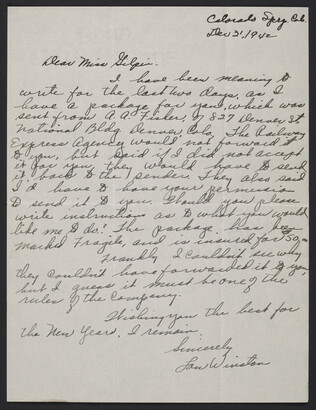 Colorado Spgs Colo.
Dec 21, 1942
Dear Miss Gilpin:
I have been meaning to
write for the last two days, as I
have a package for you, which was
sent from A. A. Fisher, of 827 Denver
National Bldg. Denver, Colo. The Railway
Express Agency would not forward it
to you, but said if I did not accept
it for you they would have to send
it back to the sender. They also said
I'd have to have your permission
to send it to you. Would you please
write instructions as to what you would
like me to do? The package has been
marked Fragile, and is insured for 50
Frankly I couldn't see why
they couldn't have forwarded it to you,
but I guess it must be one of the
rules of the Company.
Wishing you the best for
the New Years, I remain,
Sincerely
Winston